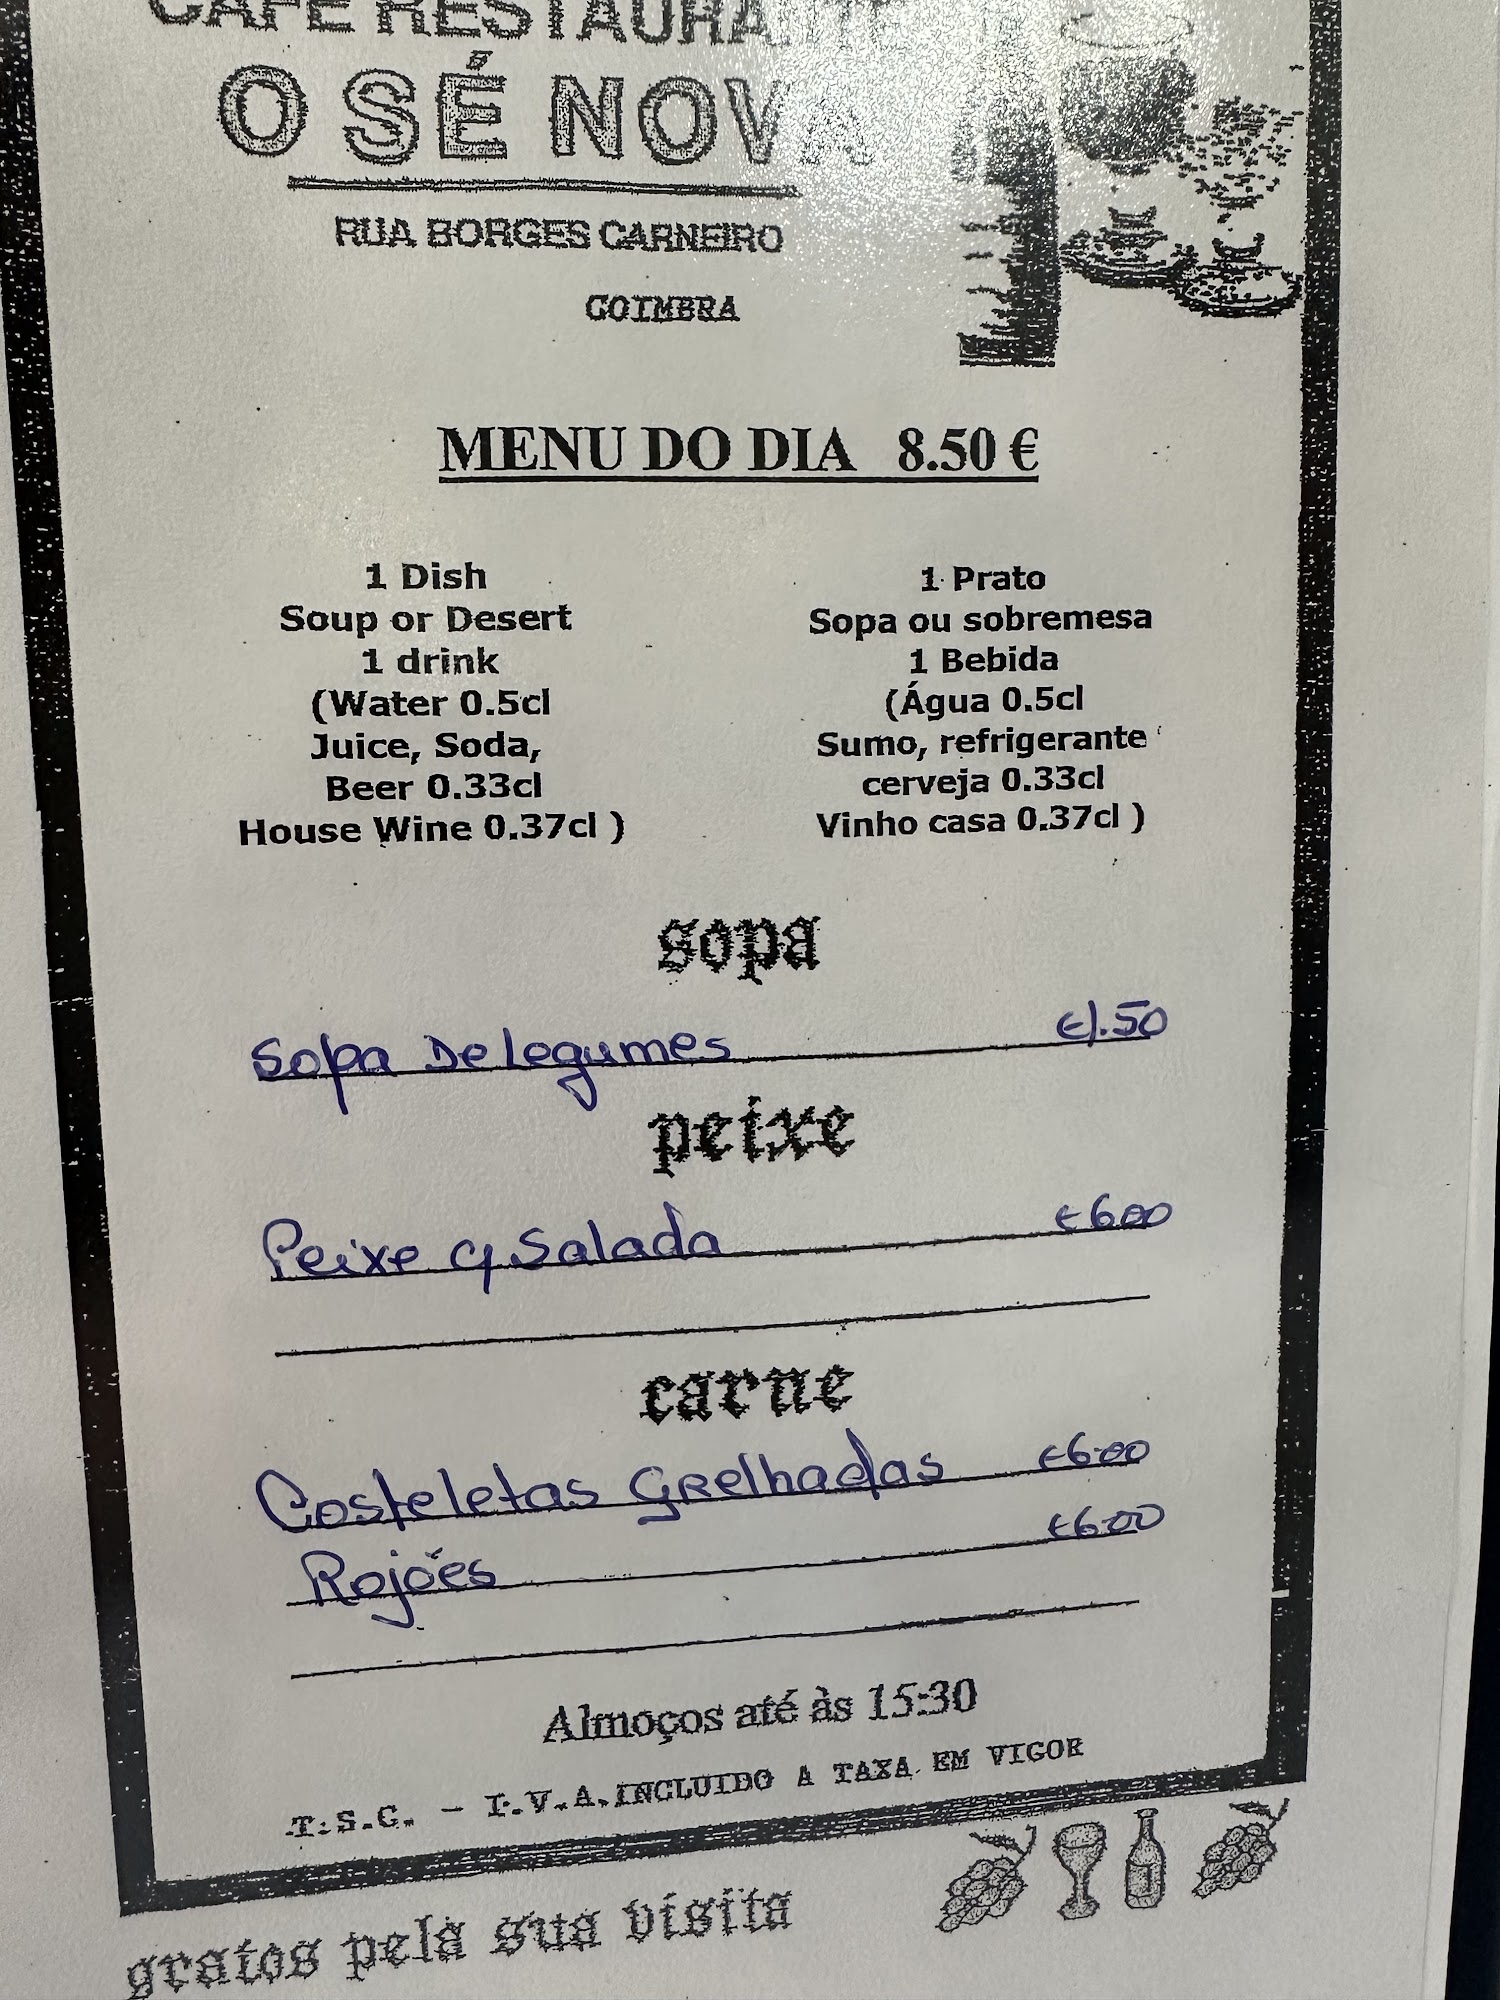 CAFÉ RESTAURANTE
O SÉ NOVA
RUA BORGES CARNEIRO
COIMBRA
MENU DO DIA 8.50 €
1 Dish
Soup or Desert
1 drink
(Water 0.5cl
Juice, Soda,
Beer 0.33cl
House Wine 0.37cl )
1 Prato
Sopa ou sobremesa
1 Bebida
(Água 0.5cl
Sumo, refrigerante
cerveja 0.33cl
Vinho casa 0.37cl )
sopa
Sopa De legumes €1.50
peixe
Peixe c/ Salada €6.00
carne
Costeletas Grelhadas €6.00
Rojões €6.00
Almoços até às 15:30
T.S.G. - I.V.A. INCLUIDO A TAXA EM VIGOR
gratos pela sua visita